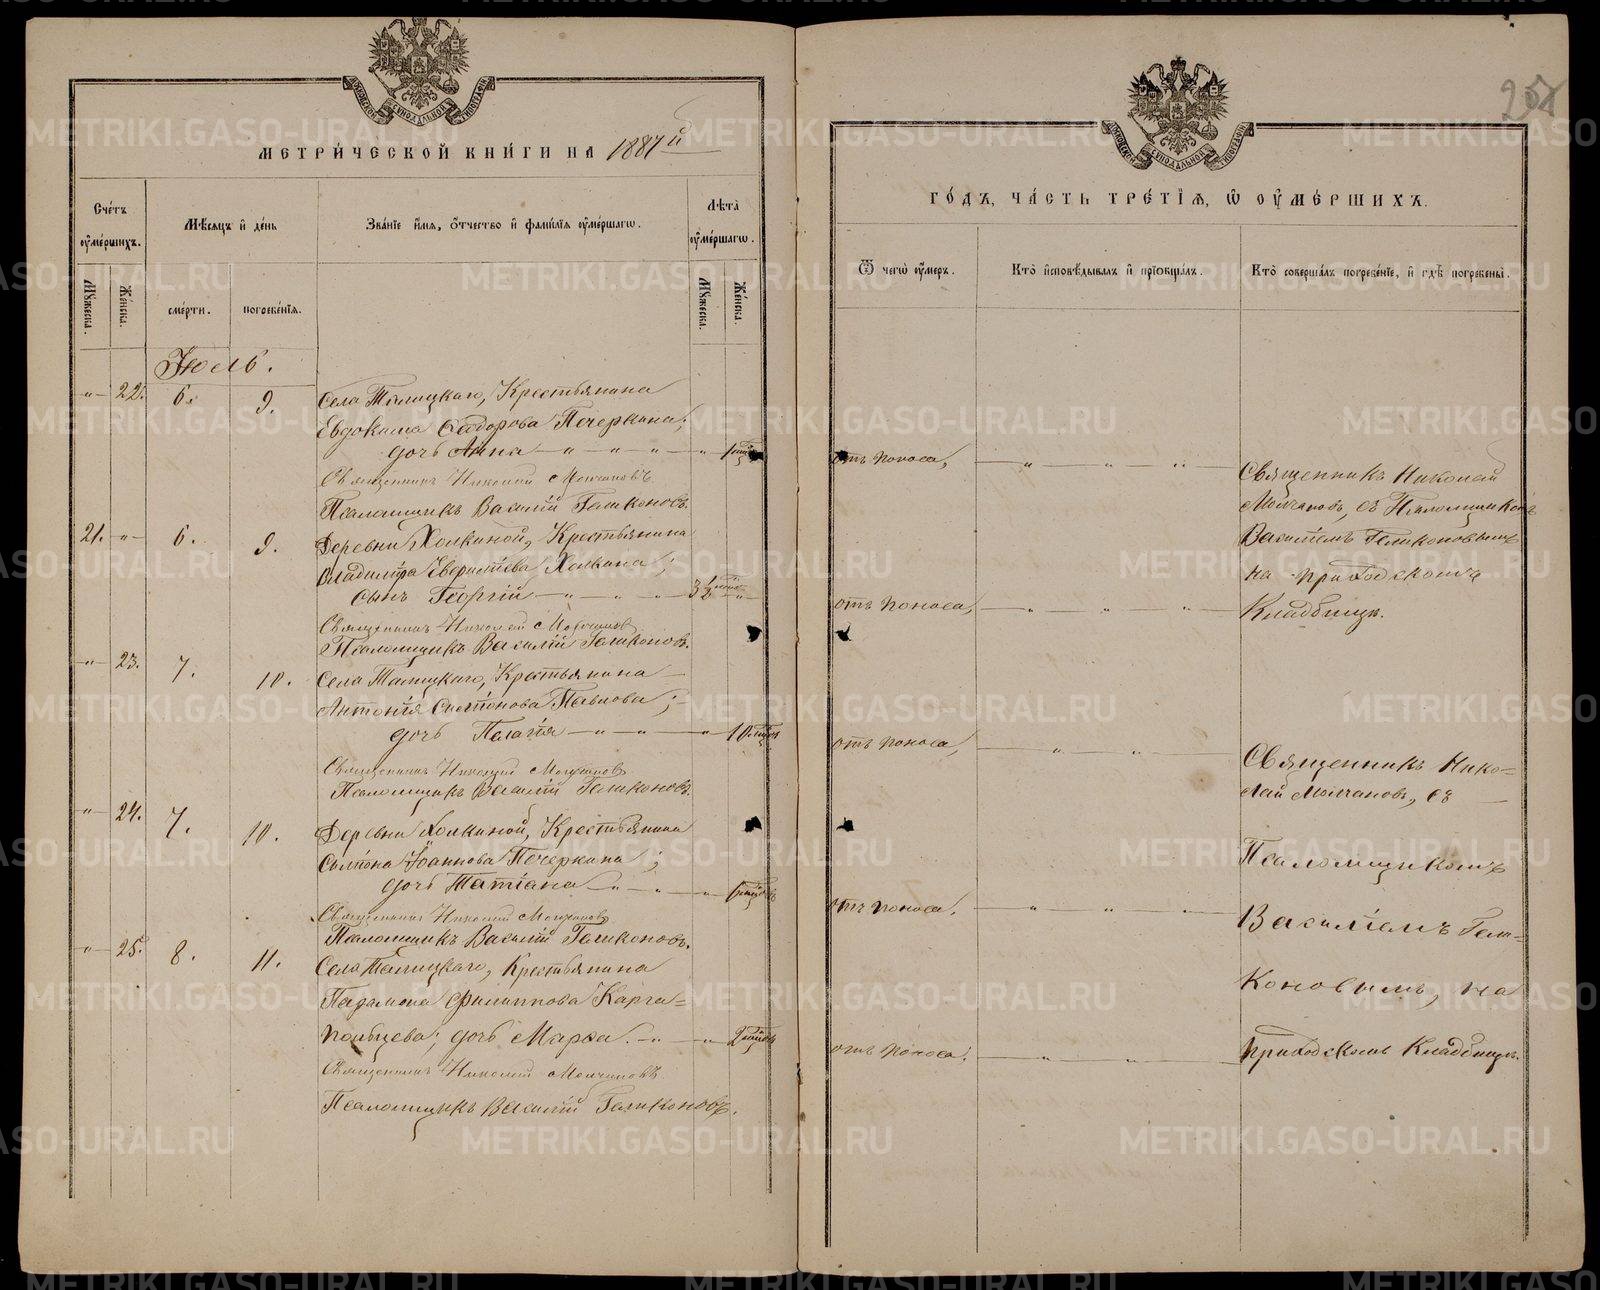 МЕТРИ́ЧЕСКОЙ КНИ́ГИ НА 1887й
Сче́тъ ᲂу҆ме́ршихъ.
Мѣ́сяцъ и҆ де́нь
Зва́нїе и҆́мя, ѻ҆́тчество и҆ фами́лїя ᲂу҆ме́ршагѡ.
Лѣта̀ ᲂу҆ме́ршагѡ.
Мꙋ́жеска.
Же́нска.
сме́рти.
погребе́нїя.
Мꙋ́жеска.
Же́нска.
Іюль.
" 22. 6. 9. Села Талицкаго, Крестьянина
Евдокима Сидорова Печеркина;
дочь Анна — " — " — "
Священникъ Николай Молчановъ
Псаломщикъ Василій Геликоновъ.
21. " 6. 9. Деревни Холкиной, Крестьянина
Владиміра Еверистѣва Холкина;
сынъ Георгій — " — " — " 3½
Священникъ Николай Молчановъ
Псаломщикъ Василій Геликоновъ.
" 23. 7. 10. Села Талицкаго, Крестьянина
Антонія Симеонова Павлова;
дочь Пелагія — " — " — "
Священникъ Николай Молчановъ
Псаломщикъ Василій Геликоновъ.
" 24. 7. 10. Деревни Холкиной, Крестьянина
Симеона Іоаннова Печеркина;
дочь Татіана — " — " — "
Священникъ Николай Молчановъ
Псаломщикъ Василій Геликоновъ.
" 25. 8. 11. Села Талицкаго, Крестьянина
Филиппова Карга=
польцева; дочь Марѳа. — " — "
Священникъ Николай Молчановъ
Псаломщикъ Василій Геликоновъ.
ГО́ДЪ, ЧА́СТЬ ТРЕ́ТЇѦ, Ѡ҆ ОУ҆МЕ́РШИХЪ.
Ѿ чегѡ̀ ᲂу҆́меръ.
Кто̀ и҆сповѣ́дывалъ и҆ прїѻбща́лъ.
Кто̀ соверша́лъ погребе́нїе, и҆ гдѣ̀ погребены̀.
отъ поноса, — " — " — "
Священникъ Николай
Молчановъ, съ Псаломщикомъ
Василіемъ Геликоновымъ
на приходскомъ
отъ поноса, — " — " — "
Кладбищѣ.
отъ поноса, — " — "
Священникъ Нико=
лай Молчановъ, съ
Псаломщикомъ
отъ поноса. — " — " — "
Василіемъ Гели=
коновымъ, на
отъ поноса. — " — "
приходскомъ Кладбищѣ.
METRIKI.GASO-URAL.RU